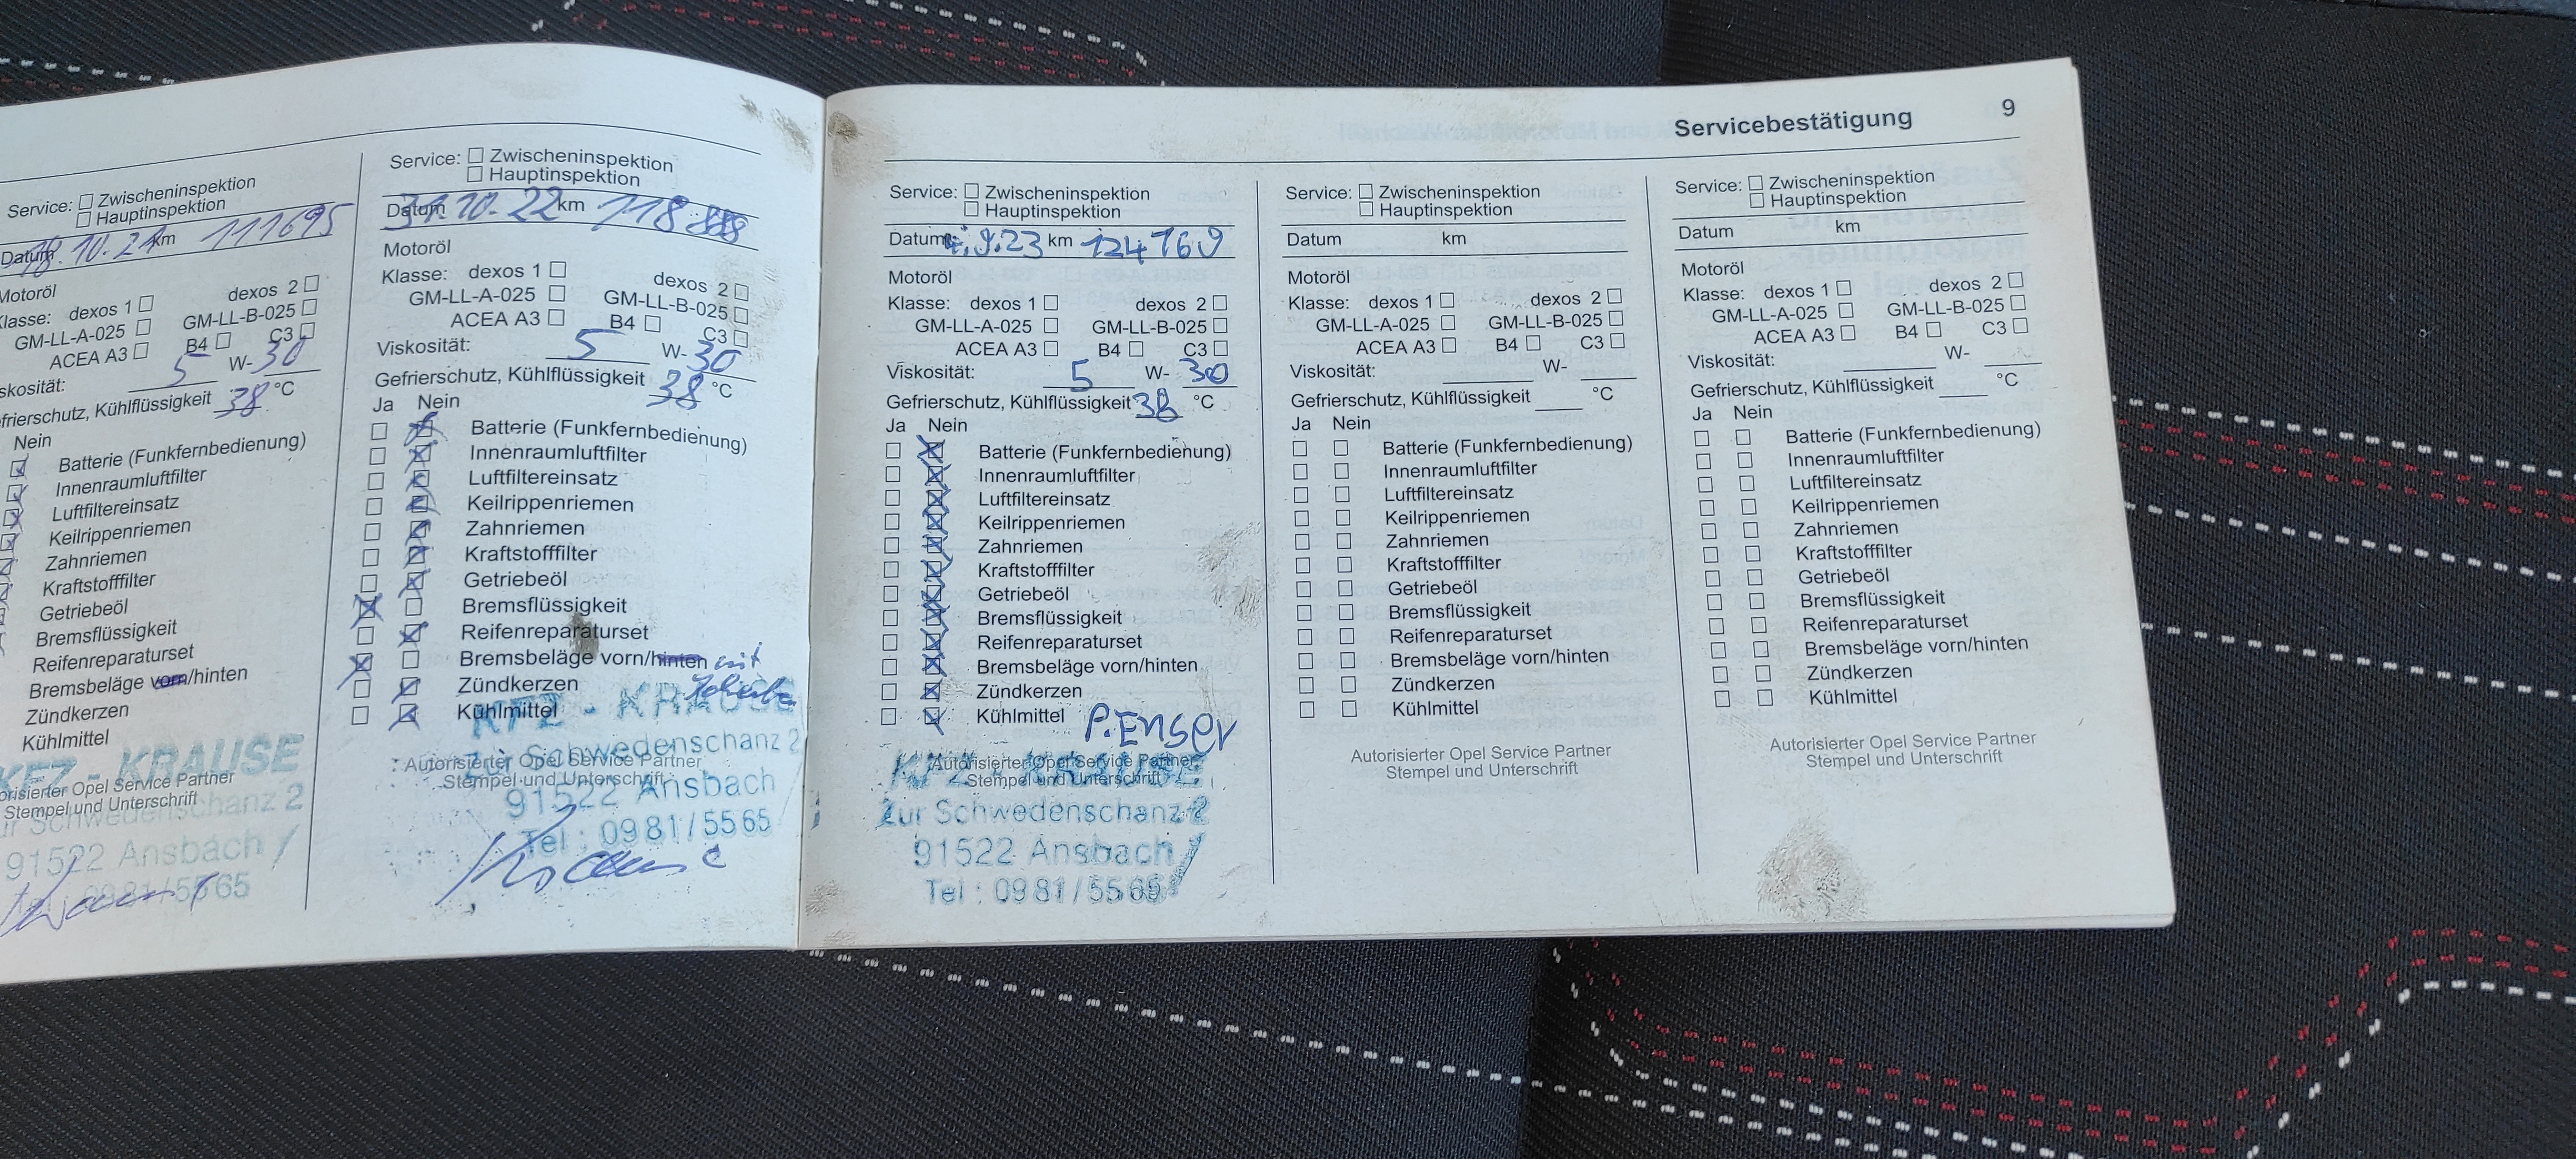 Servicebestätigung 9
Service: ☐ Zwischeninspektion
☐ Hauptinspektion
Datum 18.10.21 km 111695
Motoröl
Klasse: dexos 1 ☐ dexos 2 ☐
GM-LL-A-025 ☐ GM-LL-B-025 ☐
ACEA A3 ☐ B4 ☐ C3 ☐
skosität: 5 W-30
frierschutz, Kühlflüssigkeit 38 °C
Nein
Batterie (Funkfernbedienung)
Innenraumluftfilter
Luftfiltereinsatz
Keilrippenriemen
Zahnriemen
Kraftstofffilter
Getriebeöl
Bremsflüssigkeit
Reifenreparaturset
Bremsbeläge vorn/hinten
Zündkerzen
Kühlmittel
KFZ - KRAUSE
orisierter Opel Service Partner
Stempel und Unterschrift
ur Schwedenschanz 2
91522 Ansbach
0981/5565
Service: ☐ Zwischeninspektion
☐ Hauptinspektion
Datum 31.10.22 km 118
Motoröl
Klasse: dexos 1 ☐ dexos 2 ☐
GM-LL-A-025 ☐ GM-LL-B-025 ☐
ACEA A3 ☐ B4 ☐ C3 ☐
Viskosität: 5 W-30
Gefrierschutz, Kühlflüssigkeit 38 °C
Ja Nein
Batterie (Funkfernbedienung)
Innenraumluftfilter
Luftfiltereinsatz
Keilrippenriemen
Zahnriemen
Kraftstofffilter
Getriebeöl
Bremsflüssigkeit
Reifenreparaturset
Bremsbeläge vorn/hinten mit
Zündkerzen
Kühlmittel
KFZ - KRAUSE
Zur Schwedenschanz 2
Autorisierter Opel Service Partner
Stempel und Unterschrift
91522 Ansbach
Tel : 0981/5565
Krause
Service: ☐ Zwischeninspektion
☐ Hauptinspektion
Datum 9.23 km 124769
Motoröl
Klasse: dexos 1 ☐ dexos 2 ☐
GM-LL-A-025 ☐ GM-LL-B-025 ☐
ACEA A3 ☐ B4 ☐ C3 ☐
Viskosität: 5 W- 30
Gefrierschutz, Kühlflüssigkeit 38 °C
Ja Nein
Batterie (Funkfernbedienung)
Innenraumluftfilter
Luftfiltereinsatz
Keilrippenriemen
Zahnriemen
Kraftstofffilter
Getriebeöl
Bremsflüssigkeit
Reifenreparaturset
Bremsbeläge vorn/hinten
Zündkerzen
Kühlmittel P. Enser
KFZ - KRAUSE
Autorisierter Opel Service Partner
Stempel und Unterschrift
Zur Schwedenschanz 2
91522 Ansbach
Tel : 0981/5565
Service: ☐ Zwischeninspektion
☐ Hauptinspektion
Datum km
Motoröl
Klasse: dexos 1 ☐ dexos 2 ☐
GM-LL-A-025 ☐ GM-LL-B-025 ☐
ACEA A3 ☐ B4 ☐ C3 ☐
Viskosität: W-
Gefrierschutz, Kühlflüssigkeit °C
Ja Nein
Batterie (Funkfernbedienung)
Innenraumluftfilter
Luftfiltereinsatz
Keilrippenriemen
Zahnriemen
Kraftstofffilter
Getriebeöl
Bremsflüssigkeit
Reifenreparaturset
Bremsbeläge vorn/hinten
Zündkerzen
Kühlmittel
Autorisierter Opel Service Partner
Stempel und Unterschrift
Service: ☐ Zwischeninspektion
☐ Hauptinspektion
Datum km
Motoröl
Klasse: dexos 1 ☐ dexos 2 ☐
GM-LL-A-025 ☐ GM-LL-B-025 ☐
ACEA A3 ☐ B4 ☐ C3 ☐
Viskosität: W-
Gefrierschutz, Kühlflüssigkeit °C
Ja Nein
Batterie (Funkfernbedienung)
Innenraumluftfilter
Luftfiltereinsatz
Keilrippenriemen
Zahnriemen
Kraftstofffilter
Getriebeöl
Bremsflüssigkeit
Reifenreparaturset
Bremsbeläge vorn/hinten
Zündkerzen
Kühlmittel
Autorisierter Opel Service Partner
Stempel und Unterschrift